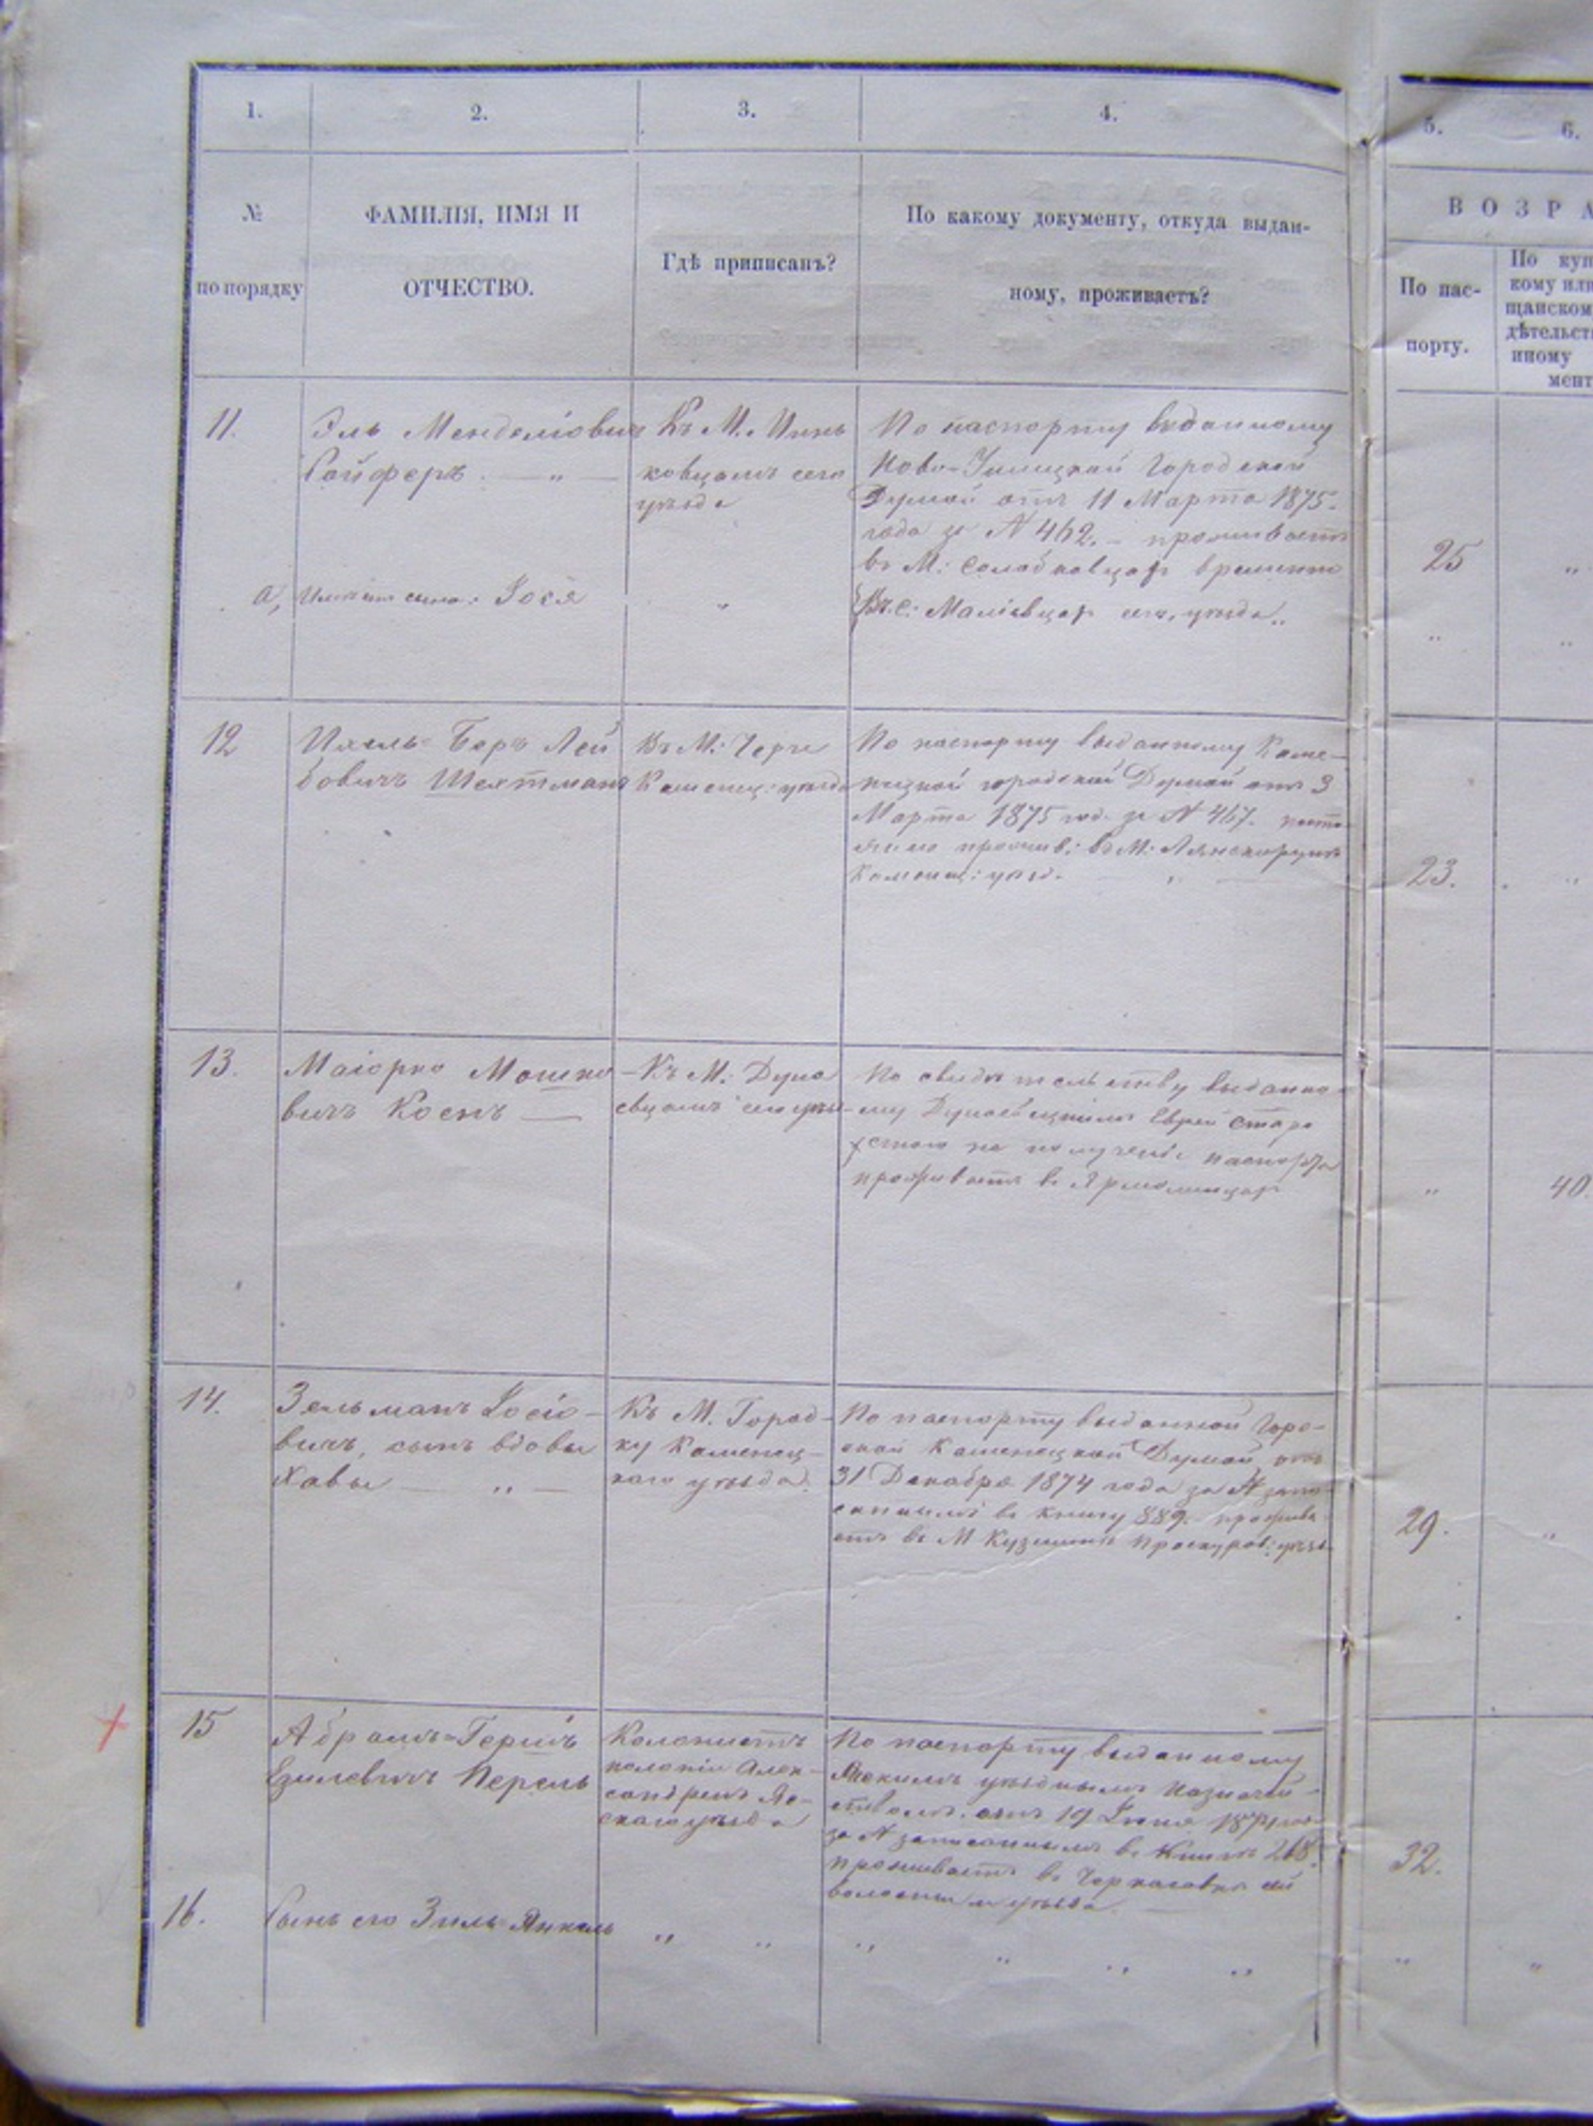 1. 2. 3. 4. 5. 6.
№ по порядку
ФАМИЛІЯ, ИМЯ И
ОТЧЕСТВО.
Гдѣ приписанъ?
По какому документу, откуда выдан-
ному, проживаетъ?
ВОЗРА
По пас-
порту.
По куп
кому или
щанском
дѣтельст
иному
мент
11.
Эль Менделіович
Сойферъ
Къ М. Минь
ковцамъ сего
уѣзда
По паспорту выданному
Ново-Ушицкой Городской
Думой отъ 11 Марта 1875
года за № 462. проживаетъ
въ М: Солобковцах временно
25
а, Имѣетъ сына: Іося
Въ с: Маліевцах сего уѣзда
12
Ихель-Беръ Лей
бовичъ Шехтманъ
Въ М: Черче
Каменец: уѣзда
По паспорту выданному Каме-
ницкой городской Думой отъ 3
Марта 1875 год. за № 467. посто-
янно прожив: въ М: Лянскорунѣ
Каменец: уѣзд.
23.
13.
Маіорко Мошко
вичъ Коенъ
Къ М: Дуна
евцамъ сего уѣз
По свидѣтельству выданно-
му Дунаевецкимъ Еврей старо
стою на полученіе паспорта
проживаетъ въ Ярмолинцах
40.
14.
Зельманъ Іосіо-
вичъ, сынъ вдовы
Хавы
Къ М. Город-
ку Каменец-
каго уѣзда.
По паспорту выданной Горо-
ской Каменецкой Думой, отъ
31 Декабря 1874 года за № запи-
саннымъ въ книгу 889. прожива
етъ въ М Кузминѣ Проскуров: уѣзд
29.
15
Абрамъ-Гершъ
Езилевичъ Перель
Колонистъ
колоніи Алек-
сандренъ Яс-
скаго уѣзда
По паспорту выданному
Яскимъ уѣзднымъ Казначей-
ствомъ отъ 19 Іюня 1874 год
за № записаннымъ въ Книгѣ 268.
проживаетъ въ
волости и уѣзда
32.
16.
Сынъ его Зиль Янкель